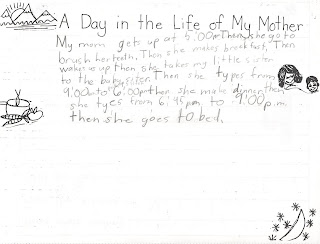 A Day in the Life of My Mother
My mom gets up at 5:00 Then she go to
brush her teeth. Then she makes breakfast. Then
wakes up then she takes my little sister
to the baby sitter. Then she types from
9:00 to 6:00 pm then she make dinner then
she tyes from 6:45 pm to 9:00 p.m.
then she goes to bed.